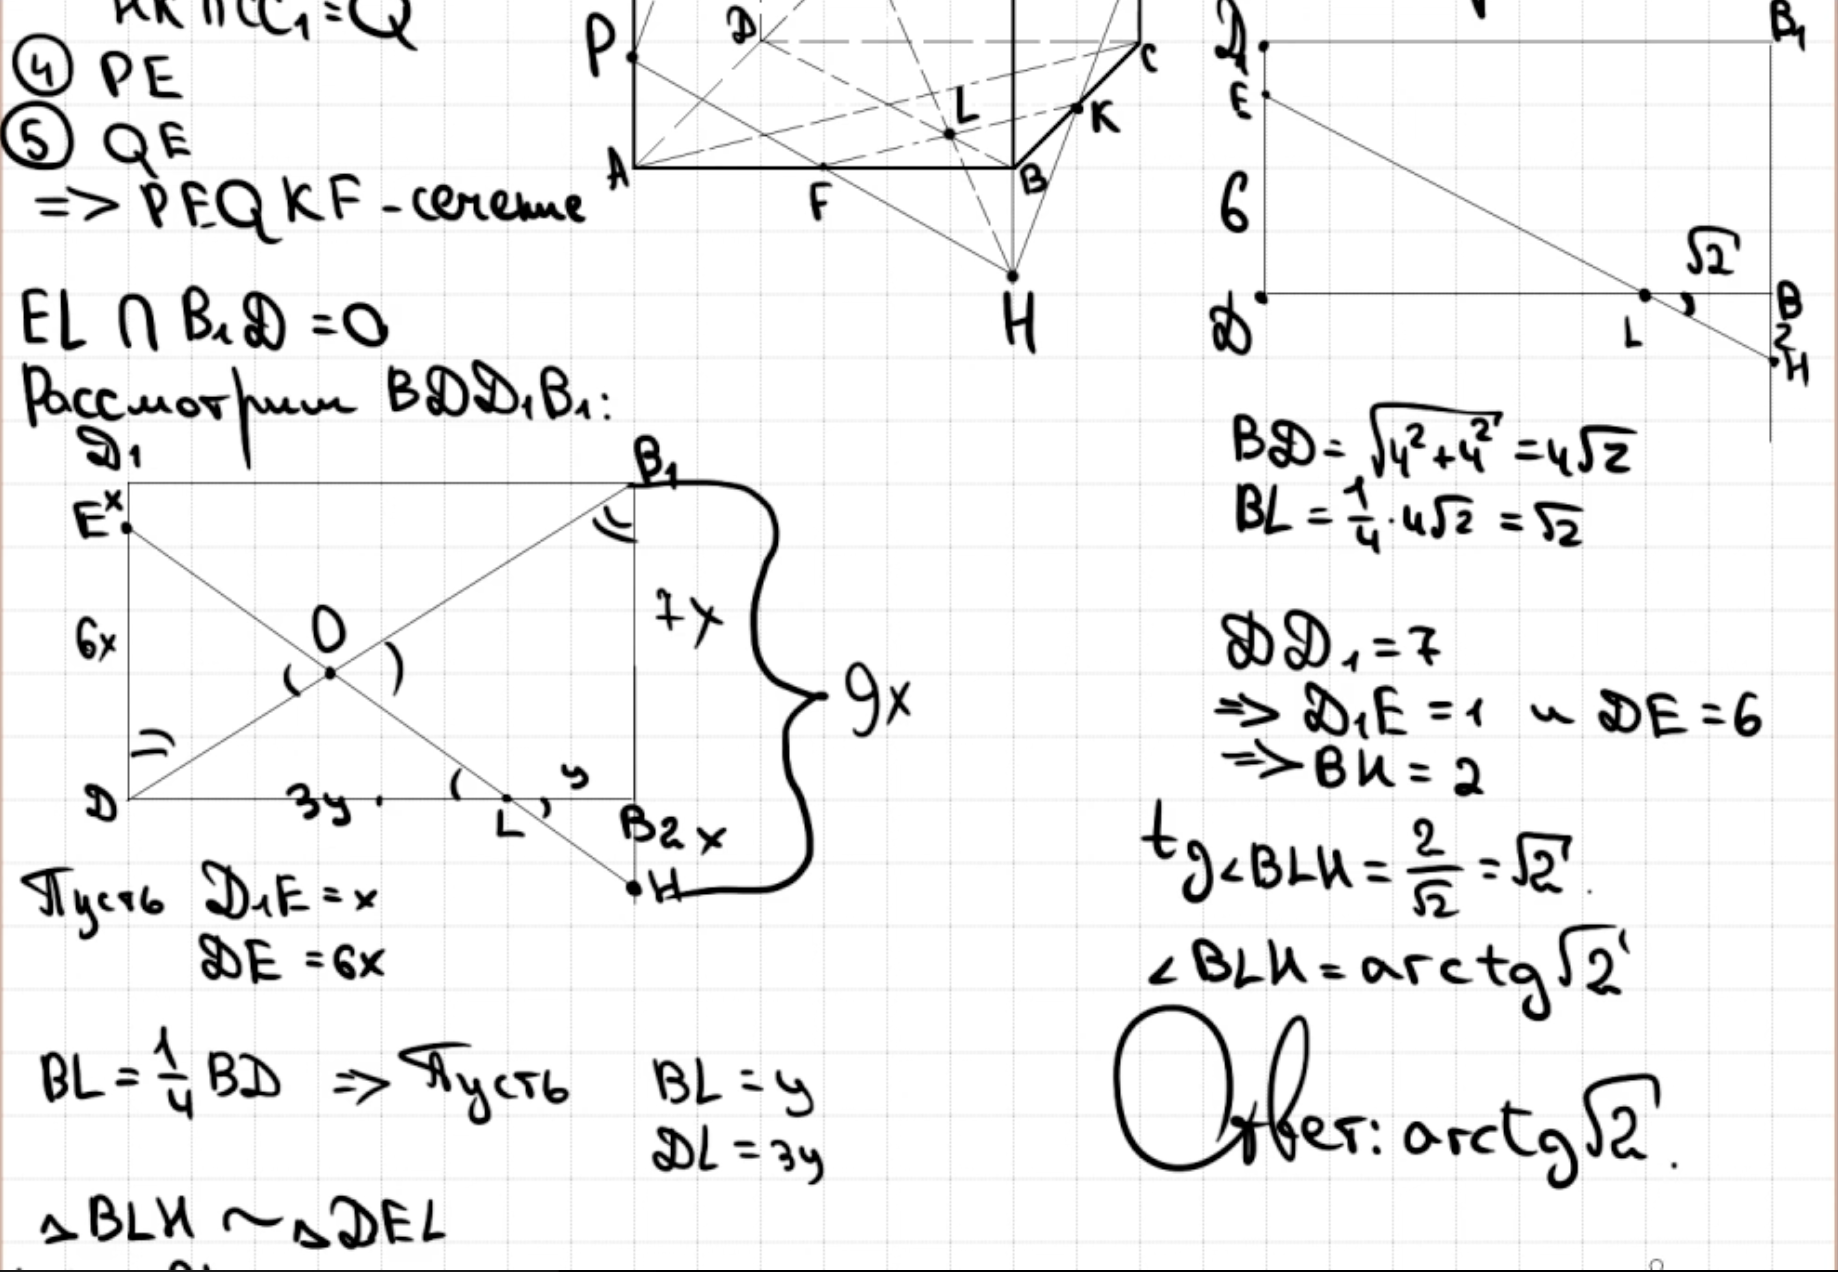 HK ∩ CC₁ = Q
④ PE
⑤ QE
=> PEQKF - сечение
P
D
C
L
K
A
F
B
H
D₁
B₁
E
6
√2
D
L
B
2
H
EL ∩ B₁D = O
Рассмотрим BDD₁B₁:
D₁
B₁
E
x
6x
O
7x
9x
D
3y
L
y
B
2x
H
Пусть D₁E = x
DE = 6x
BL = 1/4 BD => Пусть BL = y
DL = 3y
△BLH ~ △DEL
BD = √4²+4² = 4√2
BL = 1/4 · 4√2 = √2
DD₁ = 7
=> D₁E = 1 и DE = 6
=> BH = 2
tg∠BLH = 2/√2 = √2.
∠BLH = arctg√2
Ответ: arctg√2.